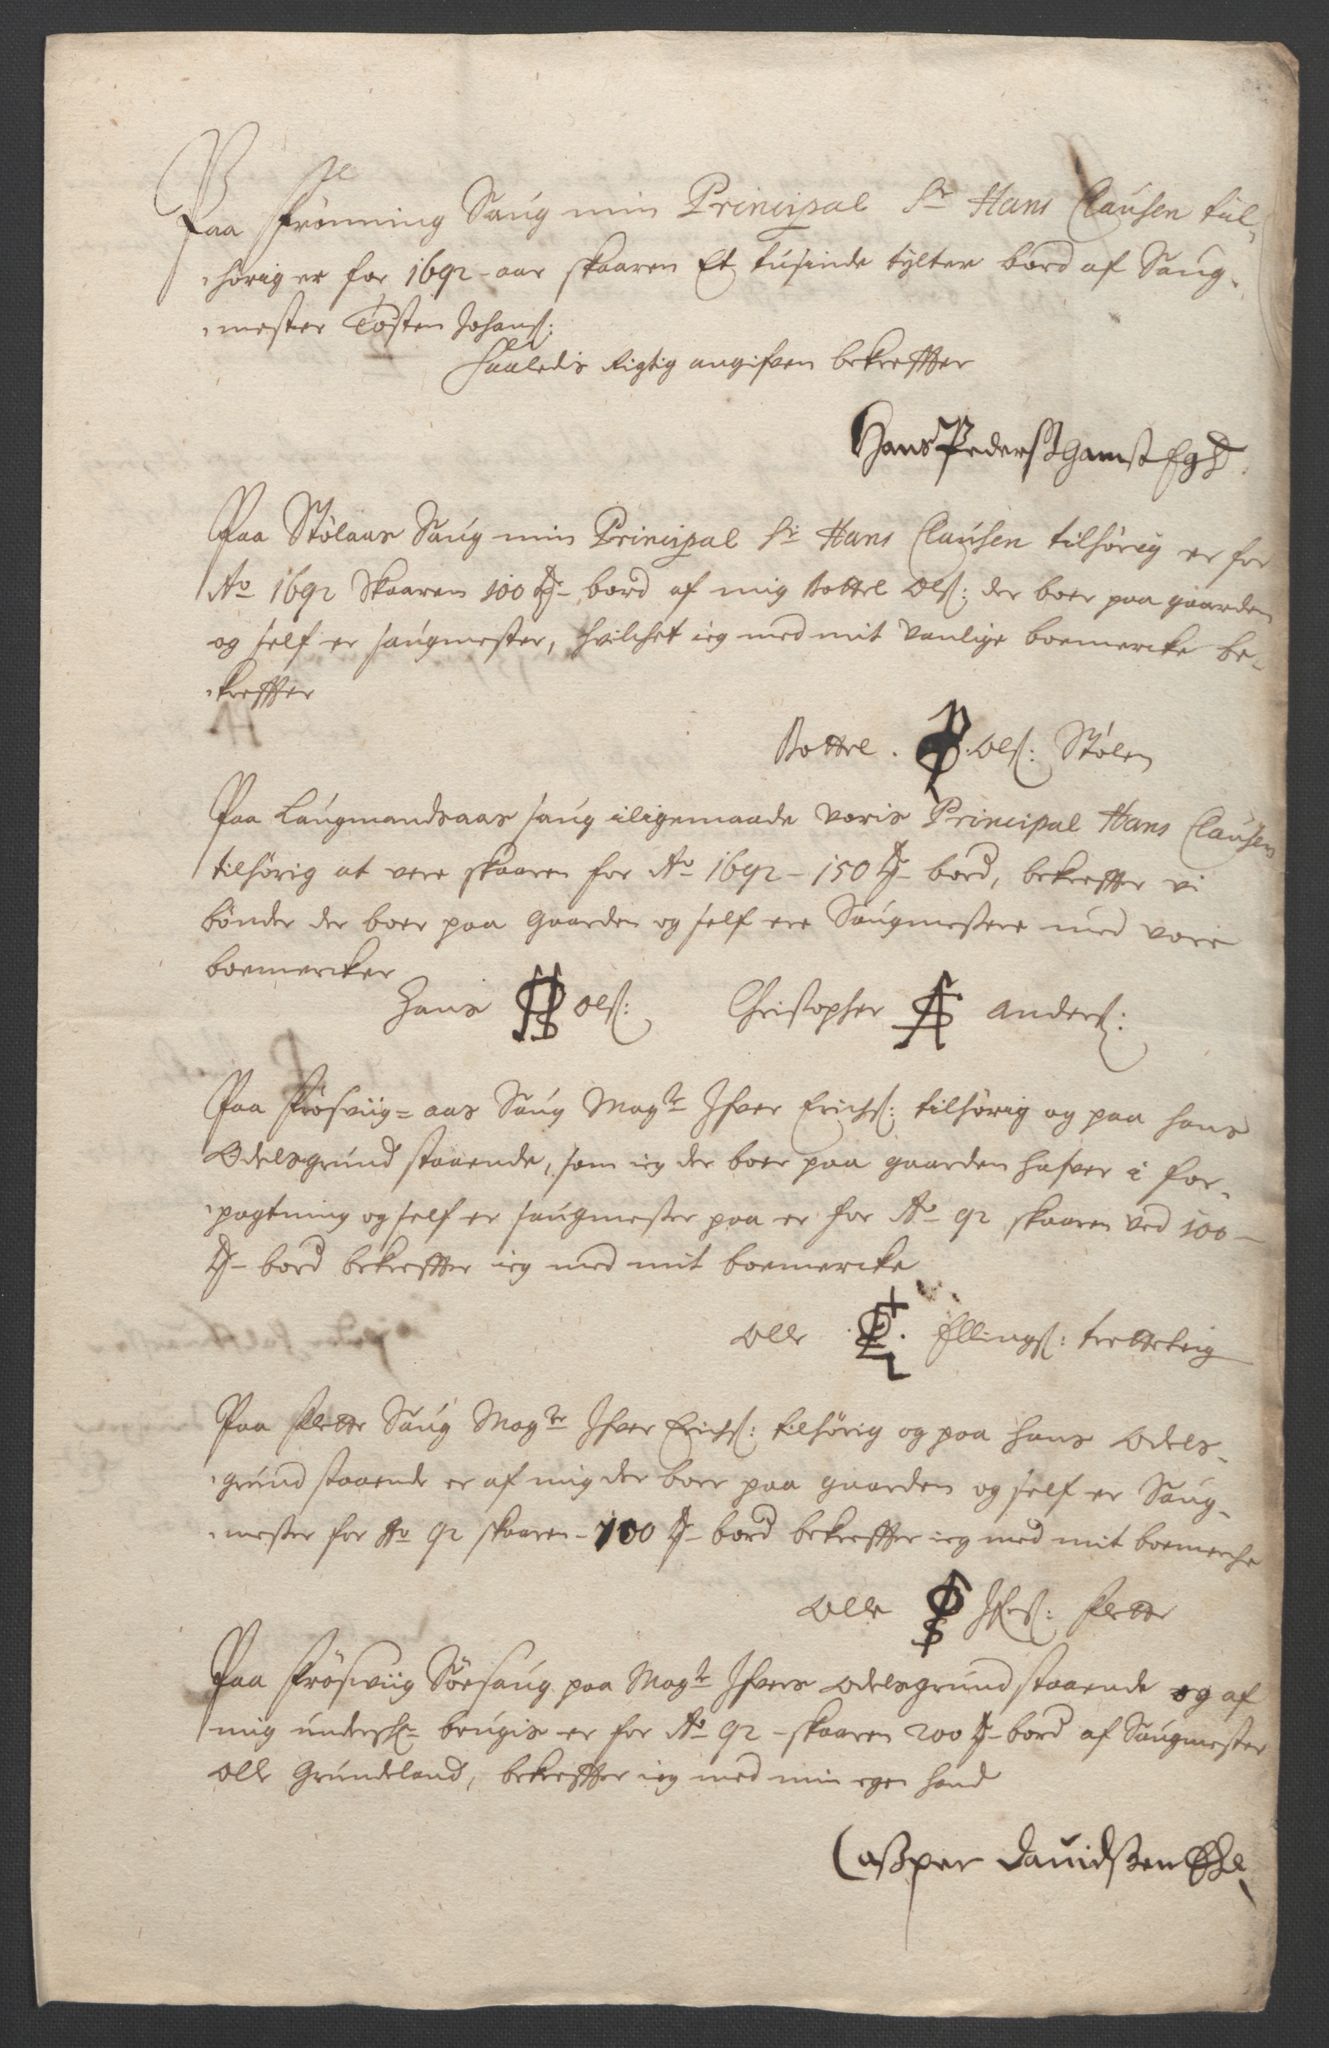 Paa Frønning Saug min Principal Sr Hans Clausen til-
hørig er for 1692 aar skaaren Et tusinde tylter bord af Saug-
mester Tosten Johans:
Saaledis Rigtig angifven bekreffter
Hans Pederss Gamst Egh
Paa Stølaas Saug min Principal Sr Hans Clausen tilhørig er for
Ao 1692 Skaaren 100 tß bord af mig Bottel Ols: der boer paa gaarden
og self er saugmester, hvilchet ieg med mit vanlige boemercke be-
kreffter
Bottel Ols: Stølen
Paa Laugmandsaas saug iligemaade voris Principal Hans Clausen
tilhørig at vere skaaren for Ao 1692 - 150 tß bord, bekreffter vi
bønder der boer paa gaarden og self ere Saugmestere med vore
boemercker
Hans Ols: Christopher Anders:
Paa Frøsviig-aas Saug Magtr Ifver Erichs: tilhørig og paa hans
Odelsgrund staaende, som ieg der boer paa gaarden hafver i for-
pagtning og self er saugmester paa er for Ao 92 skaaren ved 100
tß bord bekreffter ieg med mit boemercke
Olle Ellings: tretteteig
Paa Flette Saug Magtr Ifver Erichs: tilhørig og paa hans Odels-
grund staaende er af mig der boer paa gaarden og self er Saug-
mester for Ao 92 skaaren - 100 tß bord bekreffter ieg med mit boemerche
Olle Ifvers: Flette
Paa Frøsviig Søesaug paa Magtr Ifvers Odelsgrund staaende og af
mig undersk- brugis er for Ao 92 - skaaren 200 tß bord af Saugmester
Olle Grundeland, bekreffter ieg med min egen hand
Casper Davidssen